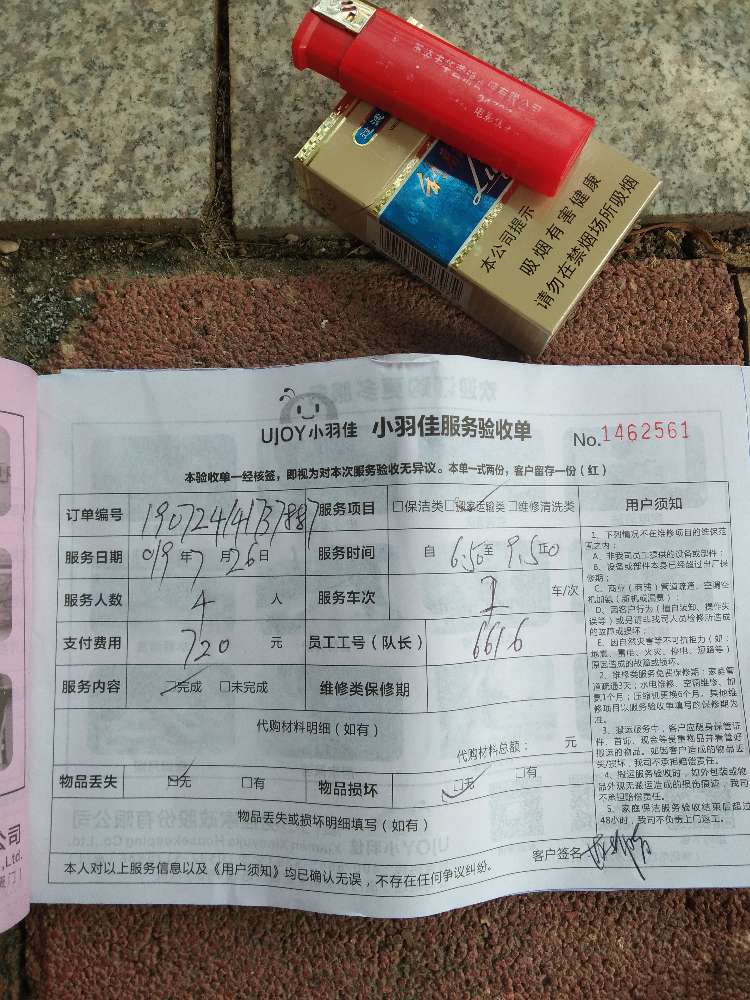 过滤
本公司提示
吸烟有害健康
请勿在禁烟场所吸烟
UJOY小羽佳 小羽佳服务验收单 No.1462561
本验收单一经核签，即视为对本次服务验收无异议。本单一式两份，客户留存一份（红）
订单编号 服务项目 □保洁类 □搬家运输类 □维修清洗类 用户须知
服务日期 019年7月26日 服务时间 自6.50至9.50
服务人数 4人 服务车次 1 车/次
支付费用 720元 员工工号（队长） 6616
服务内容 ☑完成 □未完成 维修类保修期
代购材料明细（如有）
代购材料总额： 元
物品丢失 ☑无 □有 物品损坏 ☑无 □有
物品丢失或损坏明细填写（如有）
客户签名
本人对以上服务信息以及《用户须知》均已确认无误，不存在任何争议纠纷。
1、下列情况不在维修项目的维保范
围之内：
A、非我司员工提供的设备或部件；
B、设备或部件本身已经超过出厂保
修期；
C、商业（商铺）管道疏通、空调空
机加氟（新机或漏氟）；
D、因客户行为（擅自改动、操作失
误等）或是请非我司人员检修所造成
的故障或损坏；
E、因自然灾害等不可抗拒力（如：
地震、雷电、火灾、停电、短路等）
原因造成的故障或损坏。
2、维修类服务免费保修期：家庭管
道疏通3天；水电维修、空调维修、加
氟1个月；压缩机更换6个月。其他维
修项目以服务验收单填写的保修期为
准。
3、搬运服务中，客户应随身保管证
件、首饰、现金等贵重物品并看管好
搬运的物品。如因客户造成的物品丢
失/损坏，我司不承担赔偿责任。
4、搬运服务验收时，如外包装或物
品外观无搬运造成的损伤痕迹，我司
不承担赔偿责任。
5、家庭保洁服务验收结束后超过
48小时，我司不负责上门返工。
公司
,Ltd.